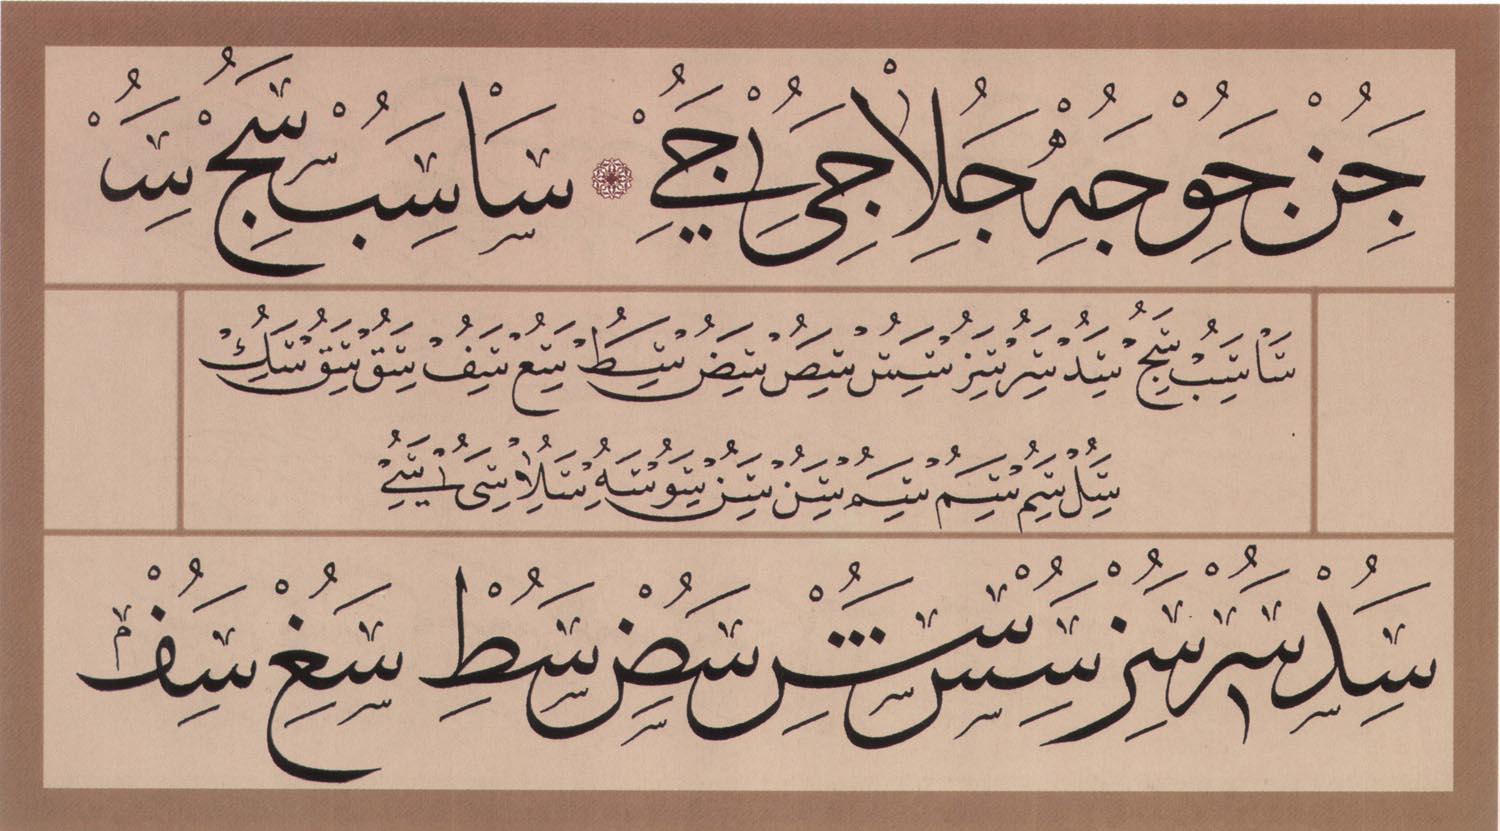 جن جو جه جلا جى جي سا سب سج س
سا سب سج سد سر سز سس سص سض سط سع سف سق سق سك
سل سم سم سم سن سن سو سه سلا سى سي
سد سر سز سس سش سض سط سغ سف